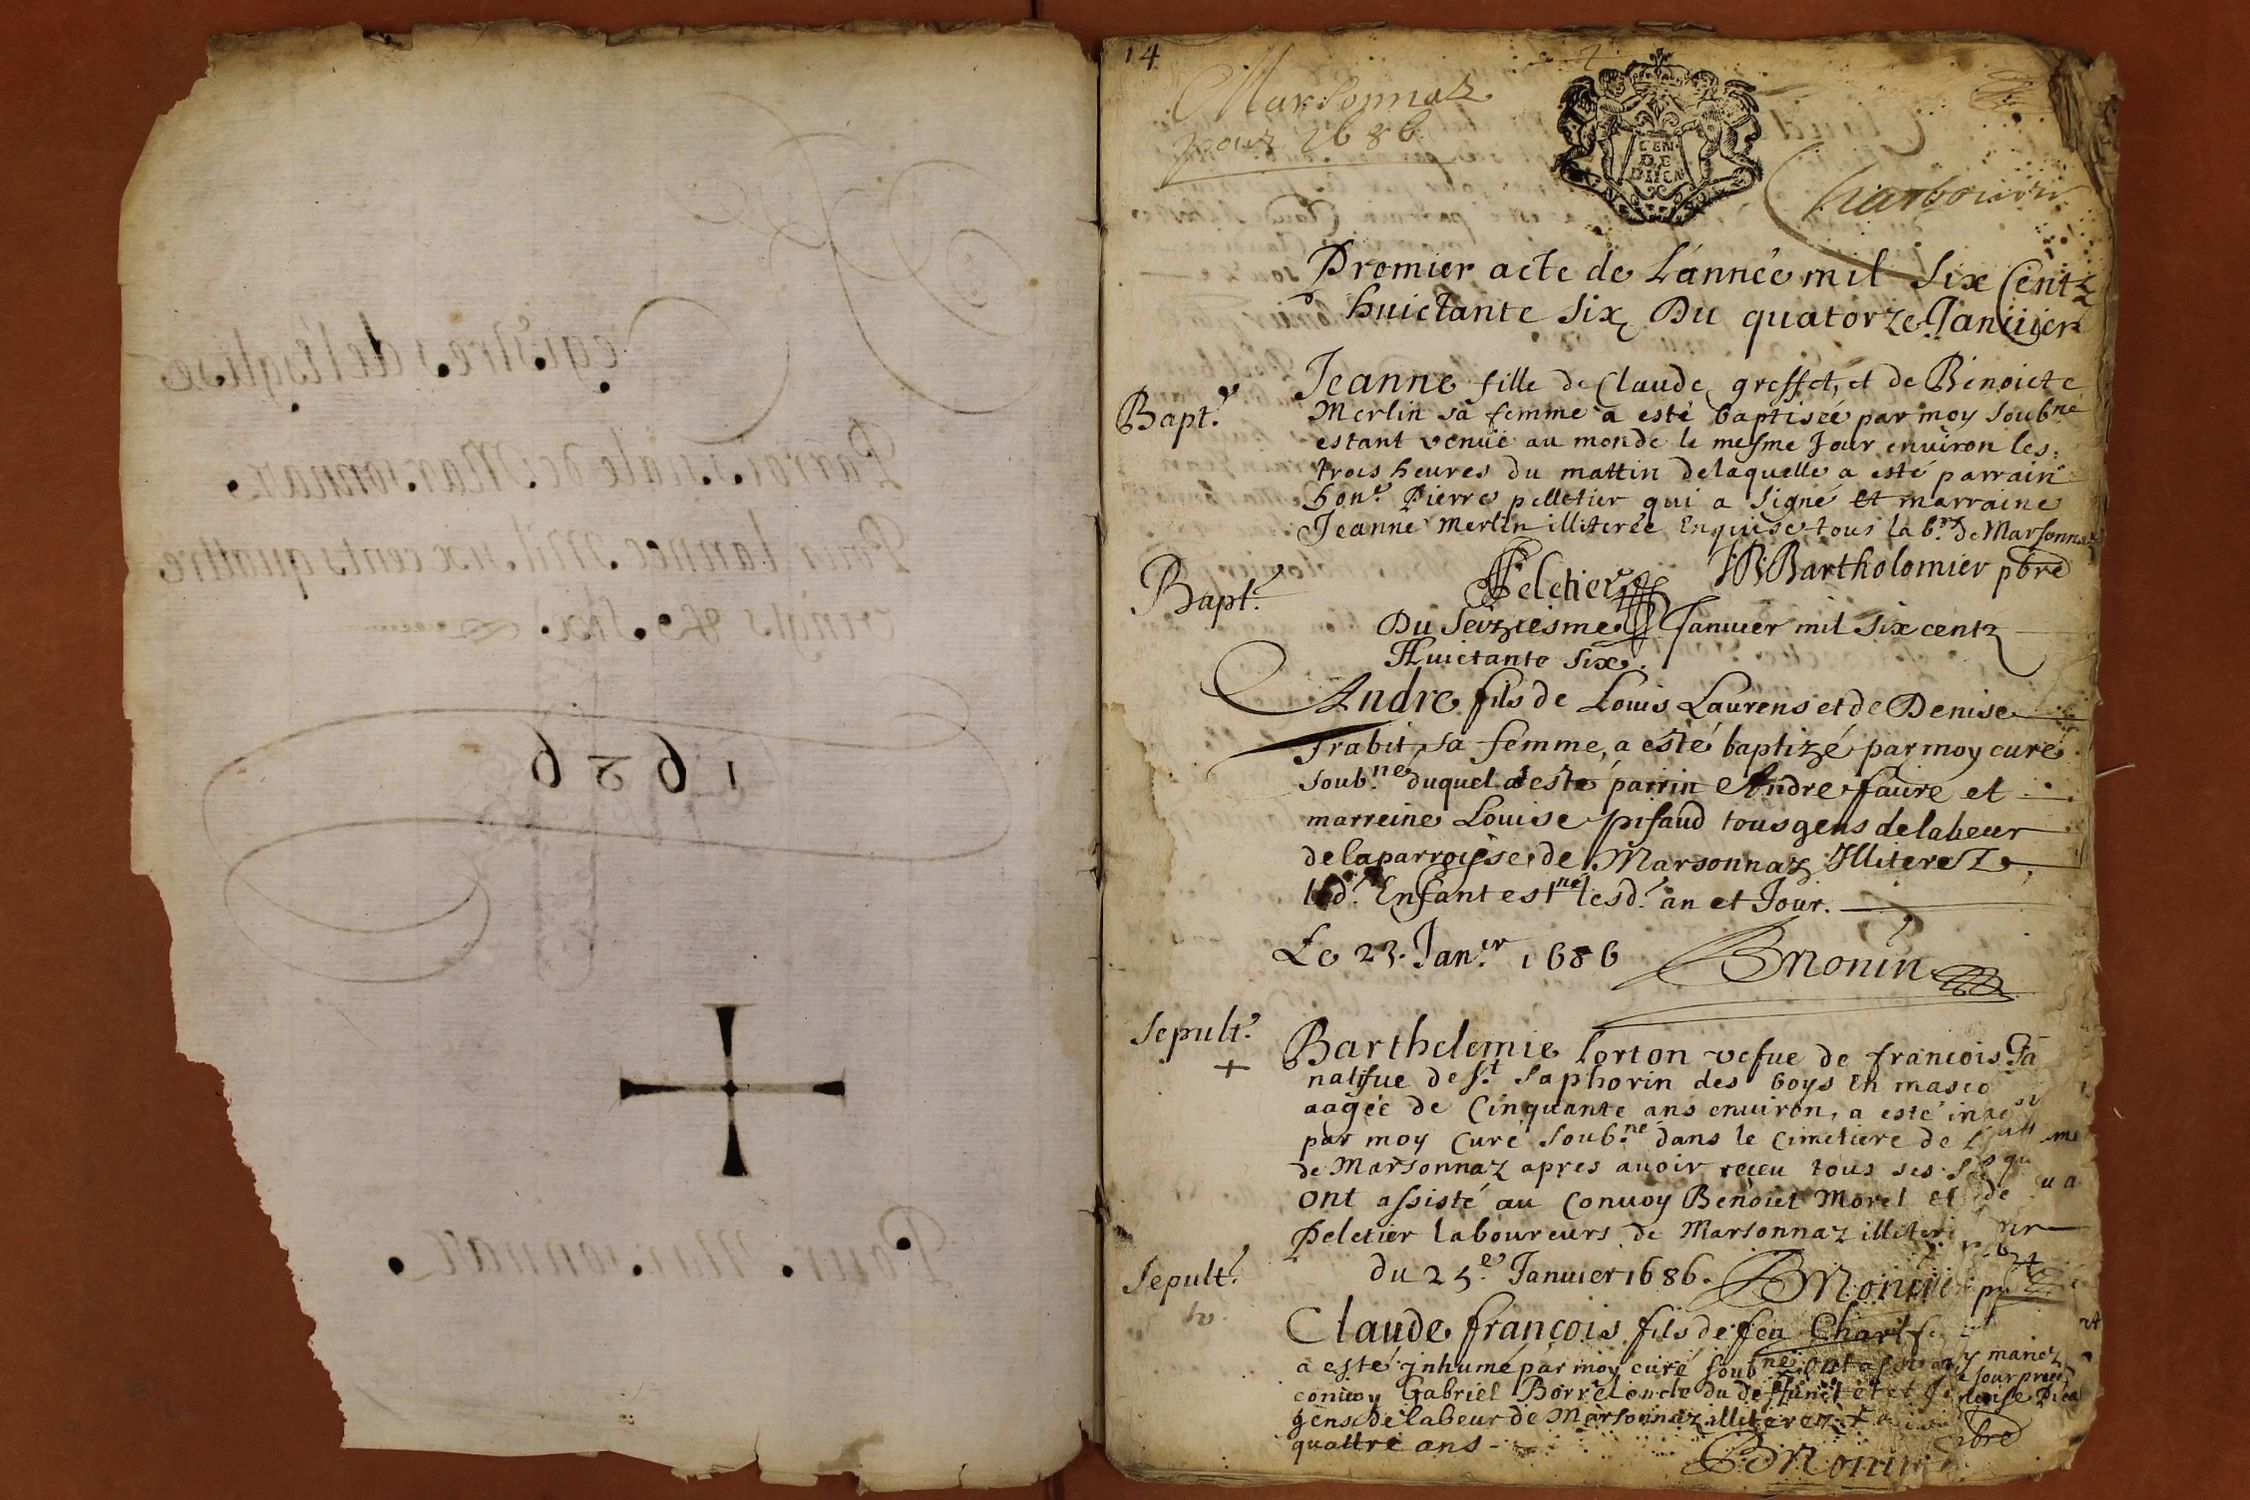 egistres de l'Esglise
Parroissiale de Marsonnaz
Pour l'annee Mil six cents quattre
vingts & six
1686
Pour Marsonnaz
14
Marsonnaz
pour 1686
GEN
DE
DIION
Charbonnier
Premier acte de L'année mil Six Centz
huictante six Du quatorze Januier
Bapt.e
Jeanne fille de Claude greffet, et de Benoicte
Merlin sa femme a esté baptisée par moy soubné
estant venüe au monde le mesme Jour enuiron les
trois heures du mattin de laquelle a esté parrain
hon.e Pierre pelletier qui a signé et marraine
Jeanne Merlin illiterée Enquise tous la b.rs de Marsonnaz
Peletier JB Bartholomier pbre
Bapt.e
Du Seiziesme Januier mil six centz
Huictante Six.
Andre fils de Louis Laurens et de Denise
Trabit sa femme, a esté baptizé par moy curé
soub.né duquel a esté parrin Andre faure et
marreine Louise pifaud tous gens de labeur
de la parroisse de Marsonnaz Illiterez
led.t Enfant est né lesd.t an et Jour.
Le 23. Jan.er 1686 Bmonin
Sepult.e
+
Barthelemie lorton vefue de francois Ja
natifue de s.t Saphorin des boys En masco
aagée de Cinquante ans enuiron, a esté in
par moy Curé Soub.né dans le Cimetiere de
de Marsonnaz apres auoir receu tous ses
ont assisté au Conuoy Benoict Morel et de
Peletier laboureurs de Marsonnaz illiter
Sepult.e
du 25.e Januier 1686. Bmonin
Claude françois fils de feu Charl
a esté inhumé par moy curé soub.né ont assi
conuoy Gabriel Borrel oncle du deffunct et
gens de labeur de Marsonnaz illiterez
quattre ans
Bmonin pbre